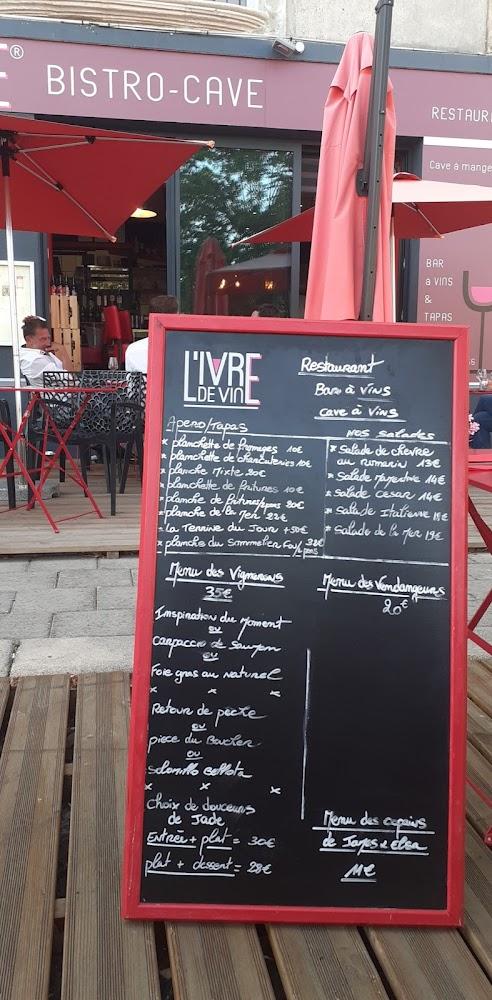 BISTRO-CAVE
RESTAUR
Cave à mange
BAR
à VINS
&
TAPAS
L'IVRE
DE VINE
Restaurant
Bar à Vins
Cave à Vins
Apero/Tapas
* planchette de fromages 10€
* planchette de charcuteries 10€
* planche Mixte 20€
* planchette de fritures 10€
* planche de fritures 20€
* planche de la Mer 22€
* la Terrine du Jour
* planche du Sommelier
Nos Salades
* Salade de chèvre
au romarin 13€
* Salade 14€
* Salade Cesar 14€
* Salade Italienne
* Salade de la Mer 19€
Menu des Vignerons
35€
Inspiration du Moment
ou
Carpaccio de Saumon
ou
Foie gras au Naturel
* * *
Retour de pêche
ou
pièce du Boucher
ou
* * *
Choix de douceurs
de Jade
Entrée + plat = 30€
plat + dessert = 28€
Menu des Vendangeurs
20€
Menu des copains
de James & Elsa
11€